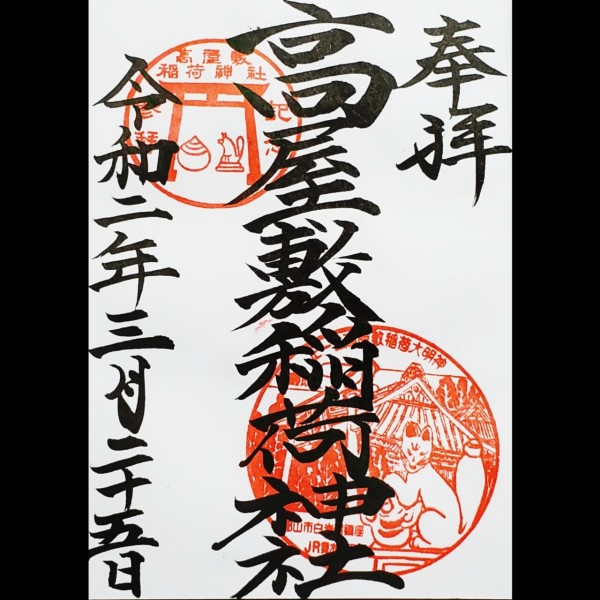 奉拝
高屋敷稲荷神社
令和二年三月二十五日
高屋敷
稲荷神社
敷稲荷大明神